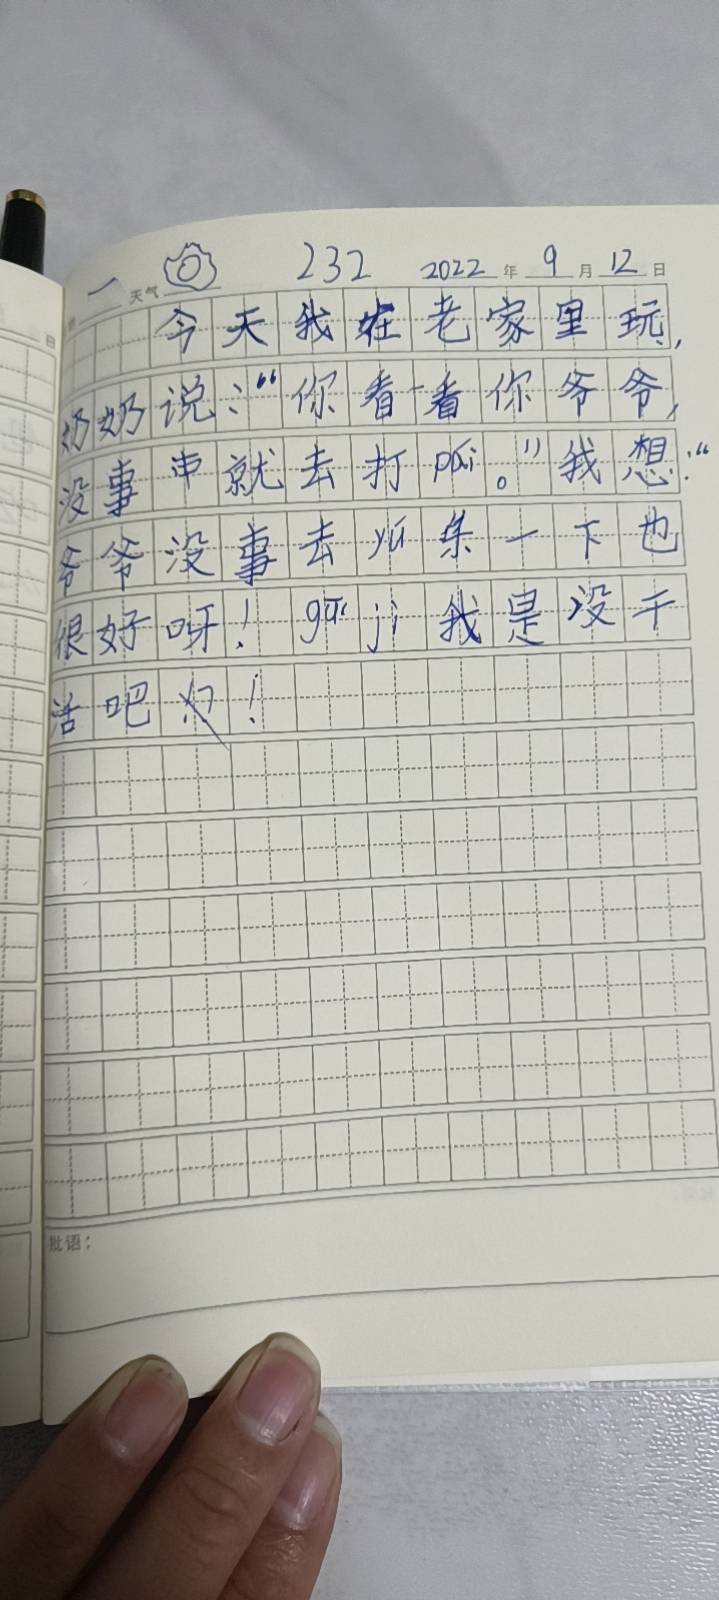 一 天气 232 2022 年 9 月 12 日
今天我在老家里玩,
奶奶说:“你看看你爷爷,
没事中就去打pái。”我想:“
爷爷没事去yú乐一下也
很好呀! gū jì 我是没干
活吧!
批语: